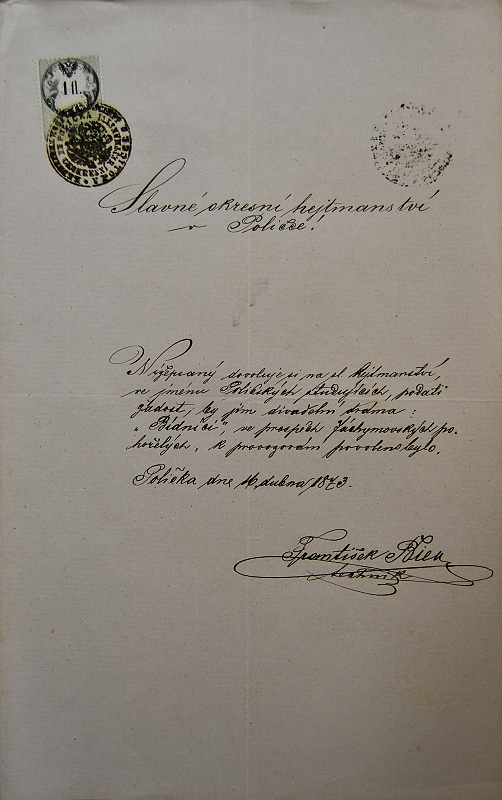 1 fl.
Slavné okresní hejtmanství
v Poličce!
Nížepsaný dovoluje si na sl. hejtmanství,
ve jménu Poličských studujících, podati
žádost, by jim divadelní drama:
„Bídníci“ ve prospěch Jáchymovských po-
hořelých, k provozování povoleno bylo.
Polička dne 16. dubna 1873.
František
technik